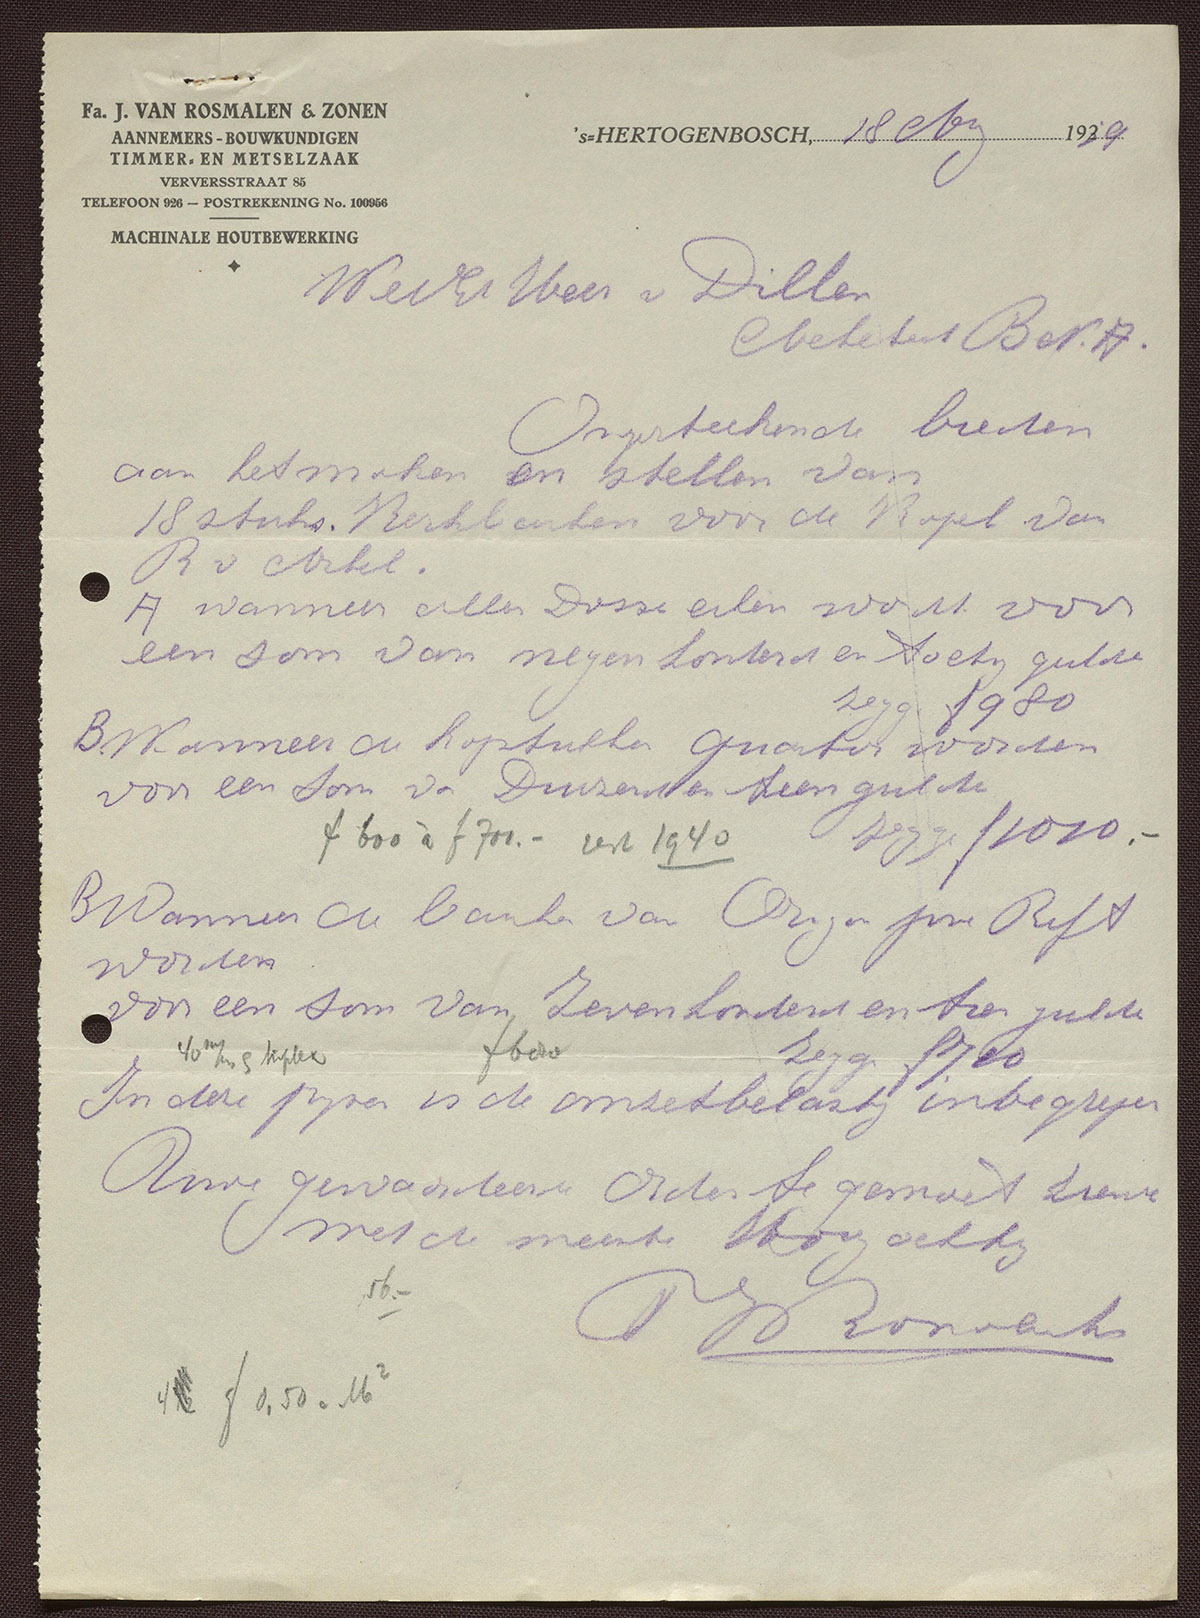 Fa. J. VAN ROSMALEN & ZONEN
AANNEMERS - BOUWKUNDIGEN
TIMMER- EN METSELZAAK
VERVERSSTRAAT 85
TELEFOON 926 — POSTREKENING No. 100956
MACHINALE HOUTBEWERKING
's-HERTOGENBOSCH, 18 1939
Heer v Dillen
B.N.A.
Ongerteekende bieden
aan het maken en stellen van
18 stuks Kerkbanken voor de Kapel van
R v Arkel.
A wanneer alles eiken wordt voor
een som van negenhonderd en tachtig gulde
zegge f 980
B. Wanneer de kopstukken worden
voor een som va Duizend en tien gulde
f 600 à f 700.- 1940 zegge f 1010.-
B Wanneer de banken van Oregon pine Rift
worden
voor een som van Zevenhonderd en tien gulde
40 m/m triplex f 600 zegge f 710
In deze prijzen is de omzetbelasting inbegrepen
gewaardeerde order te gemoet ziende
met de meeste Hoogachting
56.-
f 0,50 . M²